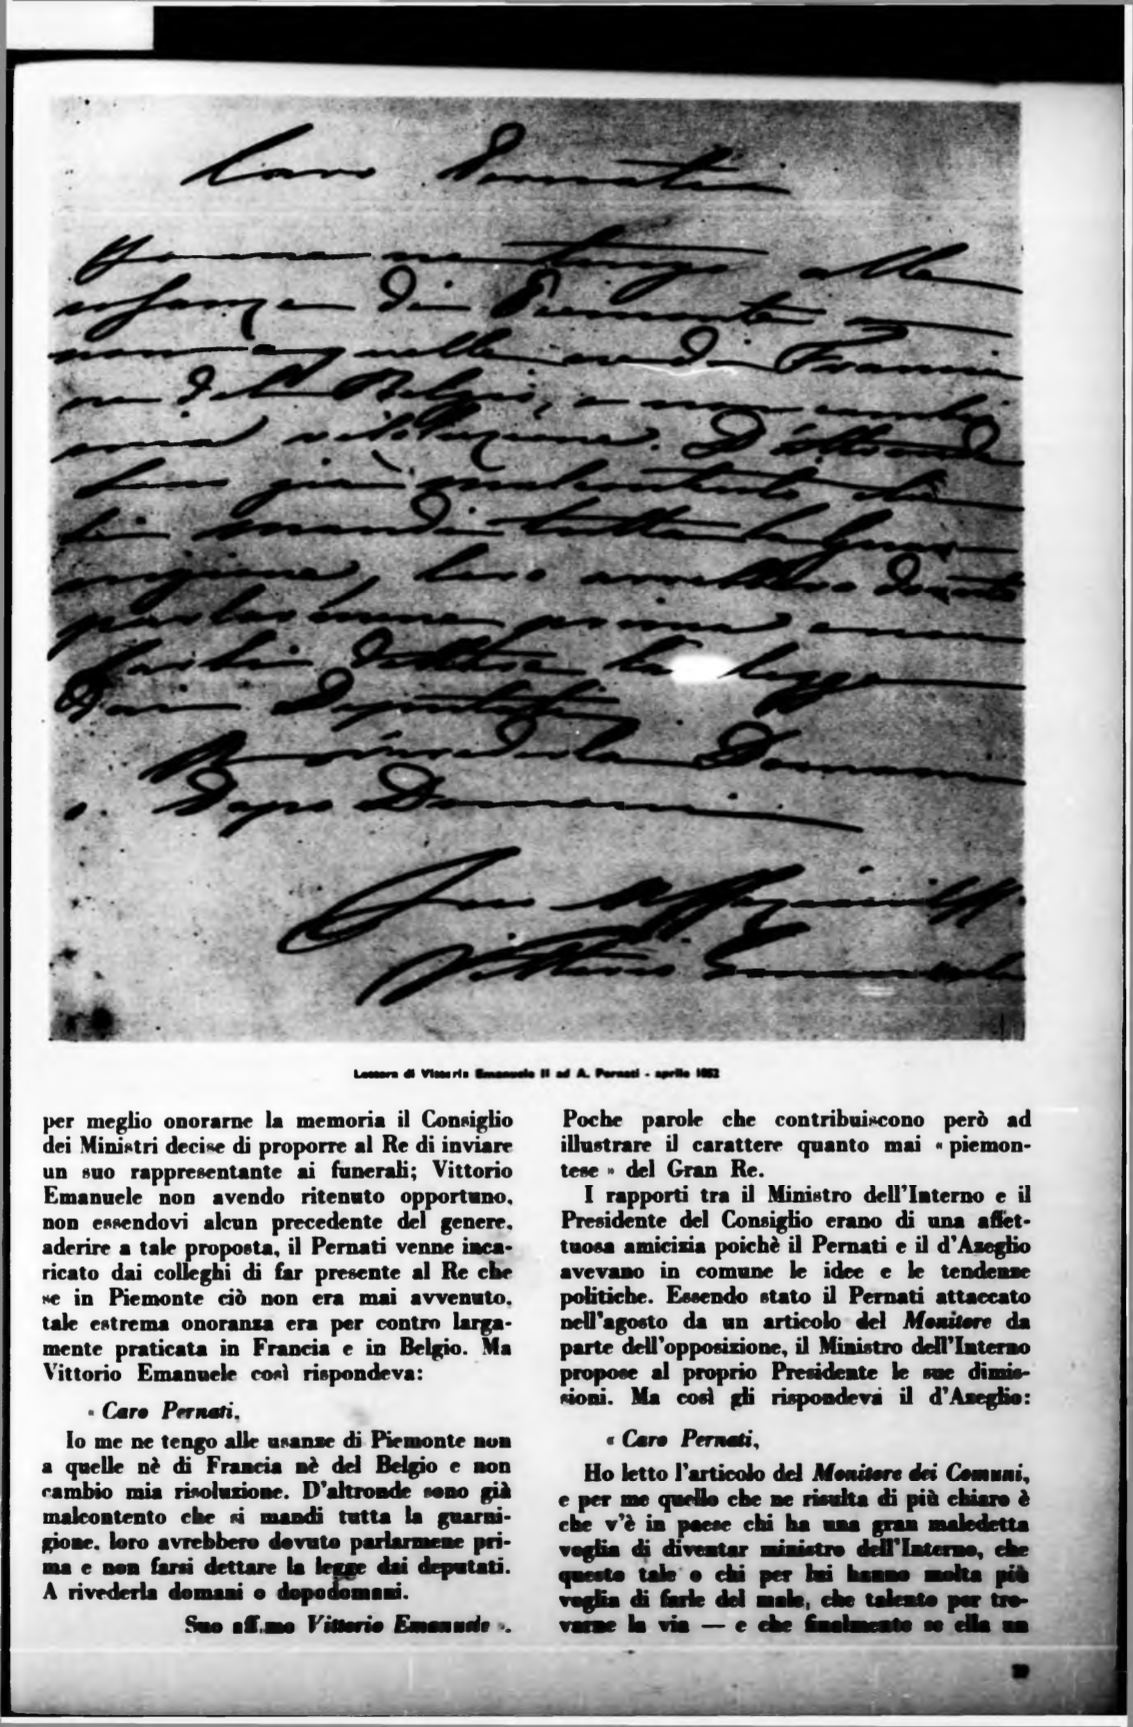 Caro Pernati
Io me ne tengo alle
usanze di Piemonte e
non a quelle ne di Francia
ne del Belgio, e non cambio
mia risoluzione. D'altronde
sono già malcontento che
si mandi tutta la guar
nigione, loro avrebbero dovuto
parlarmene prima e non
farsi dettare la legge
dai Deputati
A rivederla Domani
o Dopo Domani
Suo Affezionatiss.
Vittorio Emanuele
Lettera di Vittorio Emanuele II ad A. Pernati - aprile 1852
per meglio onorarne la memoria il Consiglio
dei Ministri decise di proporre al Re di inviare
un suo rappresentante ai funerali; Vittorio
Emanuele non avendo ritenuto opportuno,
non essendovi alcun precedente del genere,
aderire a tale proposta, il Pernati venne inca-
ricato dai colleghi di far presente al Re che
se in Piemonte ciò non era mai avvenuto,
tale estrema onoranza era per contro larga-
mente praticata in Francia e in Belgio. Ma
Vittorio Emanuele così rispondeva:
« Caro Pernati,
Io me ne tengo alle usanze di Piemonte non
a quelle nè di Francia nè del Belgio e non
cambio mia risoluzione. D'altronde sono già
malcontento che si mandi tutta la guarni-
gione, loro avrebbero dovuto parlarmene pri-
ma e non farsi dettare la legge dai deputati.
A rivederla domani o dopodomani.
Suo aff.mo Vittorio Emanuele ».
Poche parole che contribuiscono però ad
illustrare il carattere quanto mai « piemon-
tese » del Gran Re.
I rapporti tra il Ministro dell'Interno e il
Presidente del Consiglio erano di una affet-
tuosa amicizia poichè il Pernati e il d'Azeglio
avevano in comune le idee e le tendenze
politiche. Essendo stato il Pernati attaccato
nell'agosto da un articolo del Monitore da
parte dell'opposizione, il Ministro dell'Interno
propose al proprio Presidente le sue dimis-
sioni. Ma così gli rispondeva il d'Azeglio:
« Caro Pernati,
Ho letto l'articolo del Monitore dei Comuni,
e per me quello che ne risulta di più chiaro è
che v'è in paese chi ha una gran maledetta
voglia di diventar ministro dell'Interno, che
questo tale o chi per lui hanno molta più
voglia di farle del male, che talento per tro-
varne la via — e che finalmente se ella un